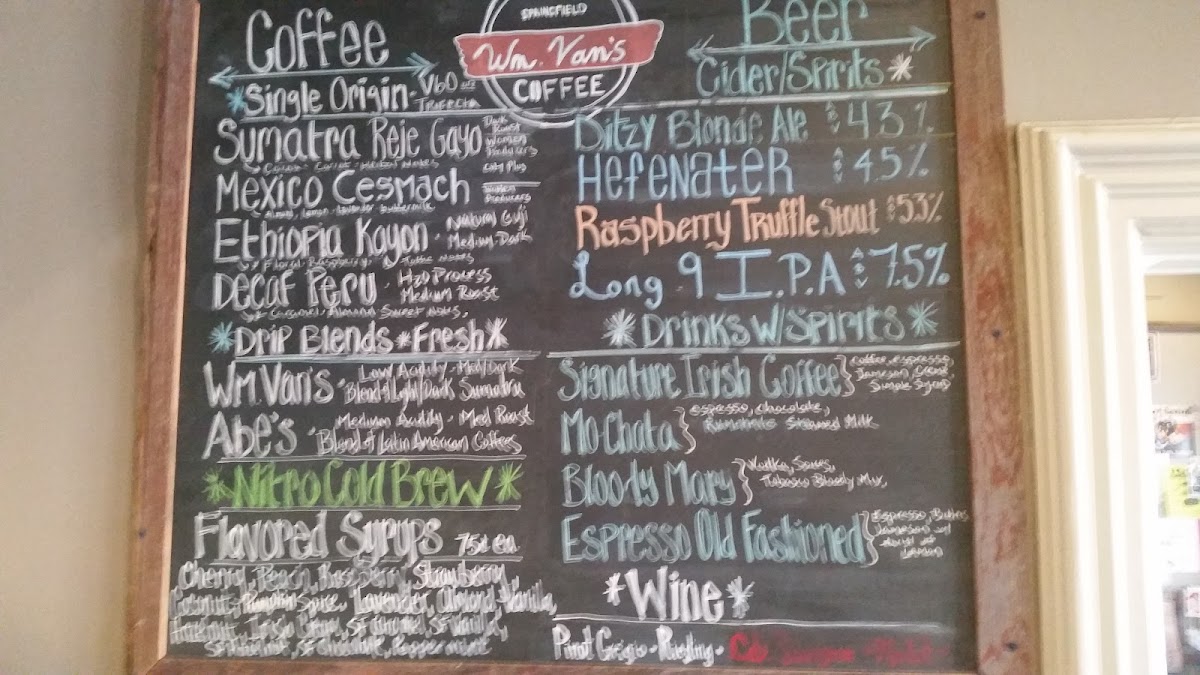 Coffee
SPRINGFIELD
Wm. Van's
COFFEE
*Single Origin - V60 or
Trifecta
Sumatra Reje Gayo
Dark
Roast
Women
Producers
City Plus
Mexico Cesmach
Women
Producers
Ethiopia Kayon - Natural Guji
Medium-Dark
Floral, Raspberry,
Decaf Peru - H2O Process
Medium Roast
Caramel, Almond Sweet Notes,
*Drip Blends *Fresh*
Wm. Van's - Low Acidity - Med/Dark
Blend of Light/Dark Sumatra
Abe's - Medium Acidity - Med Roast
Blend of Latin American Coffees
*Nitro Cold Brew*
Flavored Syrups 75¢ ea.
Cherry, Peach, Raspberry, Strawberry,
Coconut, Pumpkin Spice, Lavender, Almond, Vanilla,
Hazelnut, Irish Cream, SF Caramel, SF Vanilla,
SF Hazelnut, SF Chocolate, Peppermint
Beer
Cider/Spirits*
Ditzy Blonde Ale ABV 4.3%
Hefenater ABV 4.5%
Raspberry Truffle Stout ABV 5.3%
Long 9 I.P.A ABV 7.5%
*Drinks W/Spirits*
Signature Irish Coffee} coffee, espresso,
Jameson, Creme,
Simple Syrup
Mo-Chata} espresso, chocolate,
Rumchata Steamed Milk
Bloody Mary} Vodka, Spices,
Tabasco Bloody Mix,
Espresso Old Fashioned} Espresso, Bitters
Jameson w/
*Wine*
Pinot Grigio - Riesling - Cab Sauvignon - Merlot -